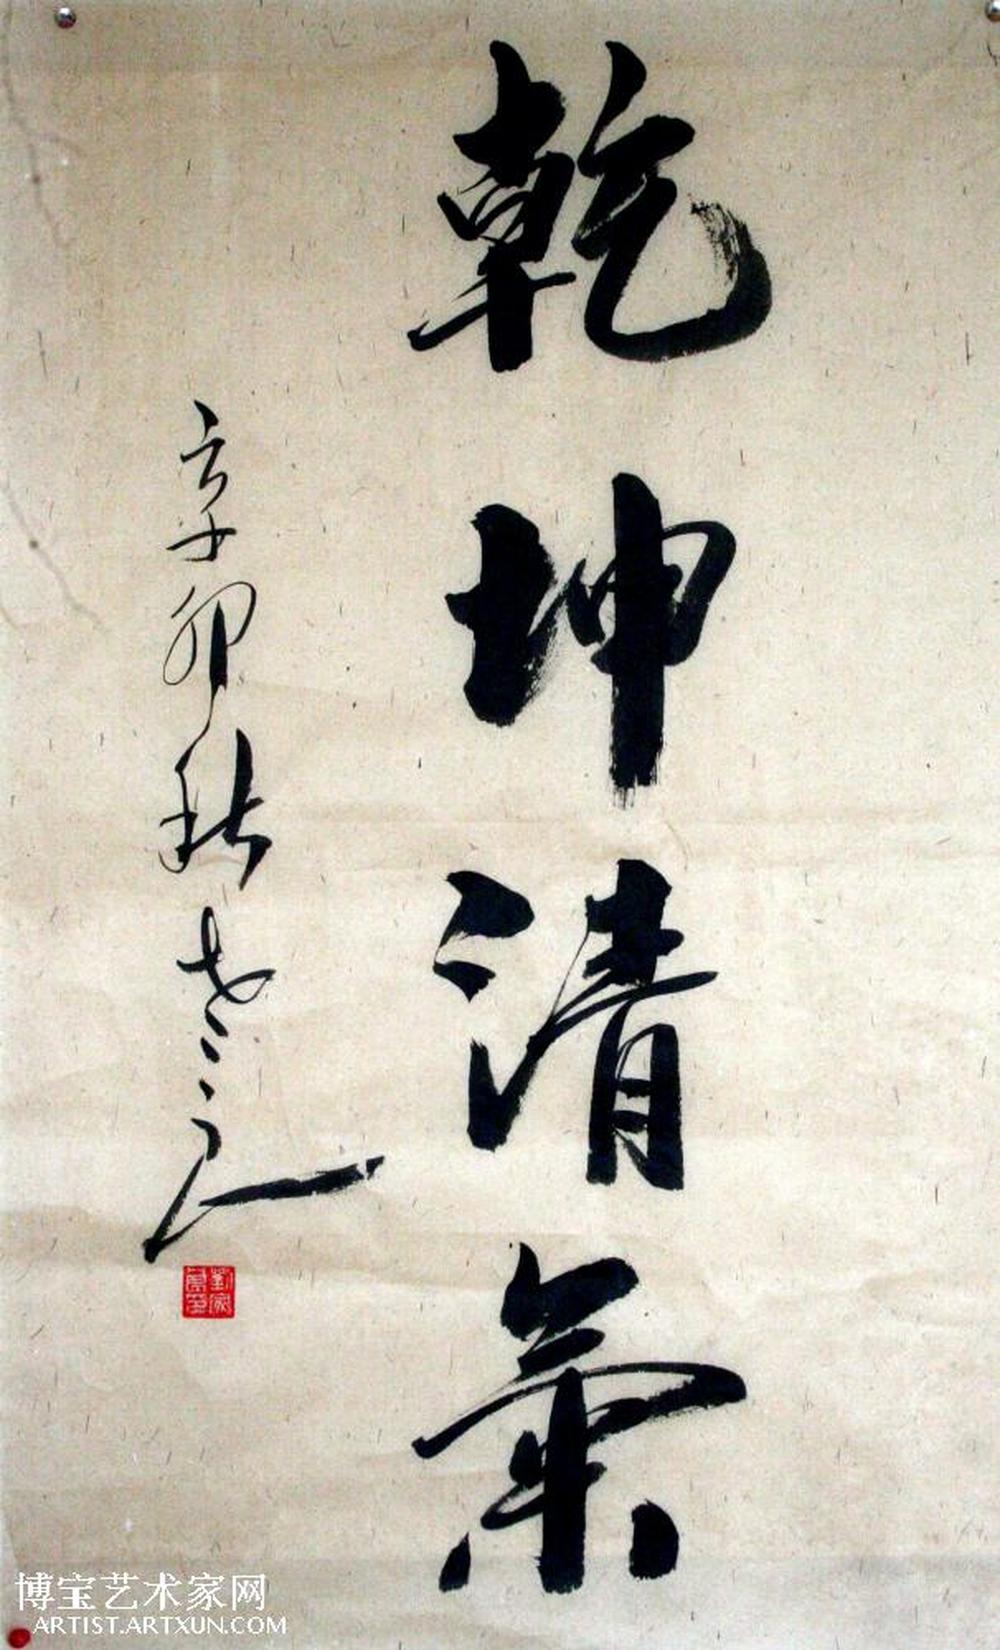 乾坤清氣
辛卯秋
博宝艺术家网
ARTIST.ARTXUN.COM